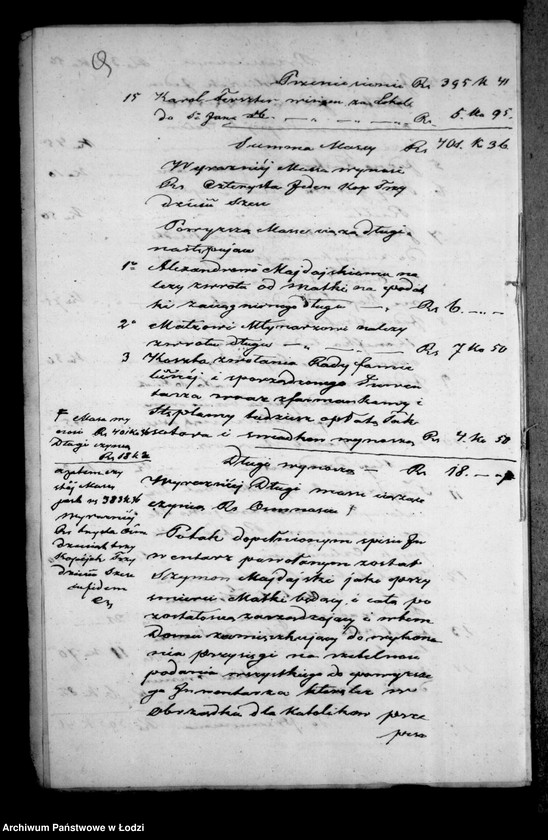 Przeniesienie Rs 395 k 41
15 Karol Ferster winien za lokal
do S. Jana rb. — Rs. 5. ko 95.
Summa Massy Rs 401. k 36
Wyraźniej Massa wynosi
Rs. Czterysta Jeden Kop Trzy
dzieści Sześć
Powyższą Massę ciążą długi
następujące
1o Alexandrowi Majdajskiemu na
leży zwrot od Matki na podat
ki zaciągnionego długu — Rs 6. — —
2o Matzowi Młynarzowi należy
zwrotu długu — Rs 7 ko 50
3 Koszta zwołania Rady fami
lijnéj i sporządzonego Inwen
tarza wraz z
Stęplamy tudzież opłatą Tak
satora i świadków wynoszą Rs 4. ko 50
Długi wynoszą — Rs 18. —
Wyraźniéj Długi masę ciążące
czynią Rs Ośmnaście
Po tak dopełnionym spisie In
wentarz powołanym został
Szymon Majdajski jako przy
śmierci Matki będący i całą po
zostałością zarządzający i w tem
Domu zamieszkujący do wykona
nia przysięgi na rzetelność
podania wszystkiego do powyższe
go Inwentarza któren w
obrządku dla Katolików prze
pisa
Massa wy
nosi Rs 401 k 36
Długi czynią
Rs 18 k
a zatem czy
stéj Massy
jest rs 383 k 36
wyraźniéj
Rs trzysta Ośm
dziesiąt trzy
Kopiejek Trzy
dzieści Sześć
Archiwum Państwowe w Łodzi